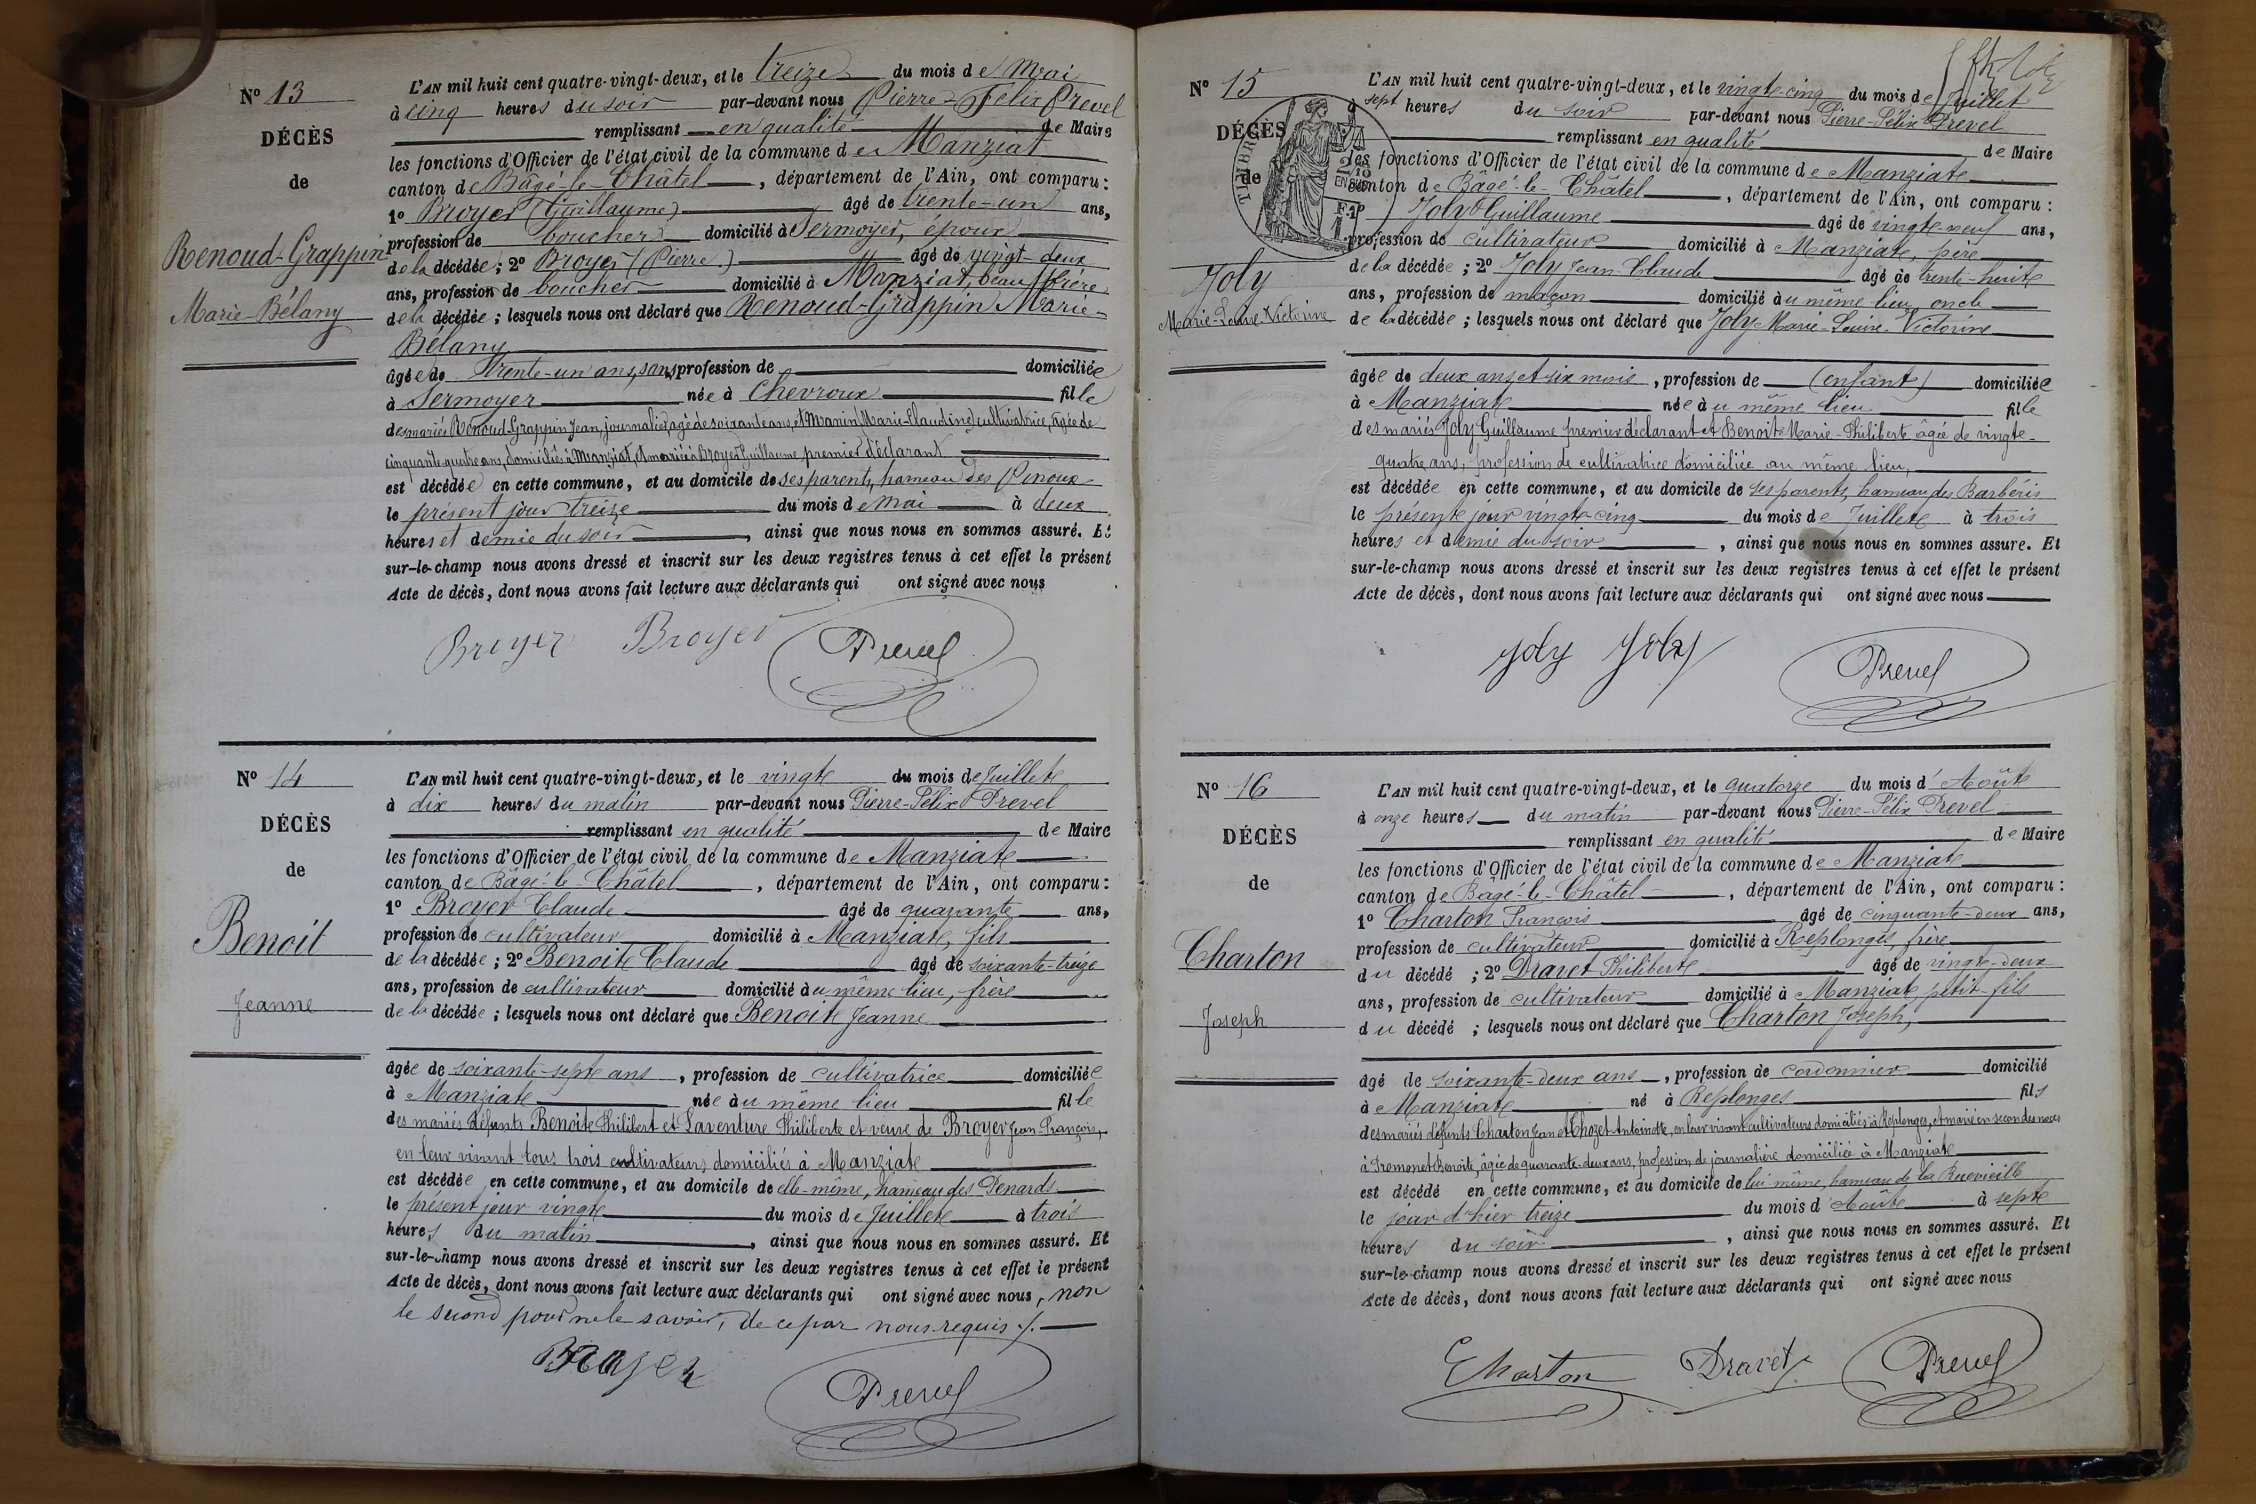 N° 13
DÉCÈS
de
Renoud-Grappin
Marie-Bélany
L'AN mil huit cent quatre-vingt-deux, et le treize du mois de Mai
à cinq heures du soir par-devant nous Pierre-Félix Prevel
remplissant en qualité de Maire
les fonctions d'Officier de l'état civil de la commune de Manziat
canton de Bâgé-le-Châtel, département de l'Ain, ont comparu :
1° Broyer (Guillaume) âgé de trente-un ans,
profession de boucher domicilié à Sermoyer, époux
de la décédée ; 2° Broyer (Pierre) âgé de vingt-deux
ans, profession de boucher domicilié à Manziat, beau-frère
de la décédée ; lesquels nous ont déclaré que Renoud-Grappin Marie-
Bélany
âgée de trente-un ans, sans profession de domiciliée
à Sermoyer née à Chevroux fille
des mariés Renoud-Grappin Jean, journalier, âgé de soixante ans, et Manin (Marie-Claudine) cultivatrice, âgée de
cinquante-quatre ans, domiciliés à Manziat, et mariée à Broyer Guillaume premier déclarant
est décédée en cette commune, et au domicile de ses parents, hameau des Pinoux
le présent jour treize du mois de Mai à deux
heures et demie du soir, ainsi que nous nous en sommes assuré. Et
sur-le-champ nous avons dressé et inscrit sur les deux registres tenus à cet effet le présent
Acte de décès, dont nous avons fait lecture aux déclarants qui ont signé avec nous
Broyer Broyer Prevel
N° 14
DÉCÈS
de
Benoit
Jeanne
L'AN mil huit cent quatre-vingt-deux, et le vingt du mois de Juillet
à dix heures du matin par-devant nous Pierre-Félix Prevel
remplissant en qualité de Maire
les fonctions d'Officier de l'état civil de la commune de Manziat
canton de Bâgé-le-Châtel, département de l'Ain, ont comparu :
1° Broyer Claude âgé de quarante ans,
profession de cultivateur domicilié à Manziat, fils
de la décédée ; 2° Benoit Claude âgé de soixante-treize
ans, profession de cultivateur domicilié au même lieu, frère
de la décédée ; lesquels nous ont déclaré que Benoit Jeanne
âgée de soixante-sept ans, profession de cultivatrice domiciliée
à Manziat née au même lieu fille
des mariés défunts Benoit Philibert et Laventure Philiberte et veuve de Broyer Jean-François,
en leur vivant tous trois cultivateurs domiciliés à Manziat
est décédée en cette commune, et au domicile de elle-même, hameau des Penards
le présent jour vingt du mois de Juillet à trois
heures du matin, ainsi que nous nous en sommes assuré. Et
sur-le-champ nous avons dressé et inscrit sur les deux registres tenus à cet effet le présent
Acte de décès, dont nous avons fait lecture aux déclarants qui ont signé avec nous, non
le second pour ne le savoir, de ce par nous requis ./.
Broyer Prevel
N° 15
DÉCÈS
de
Joly
Marie-Louise-Victorine
TIMBRE
2/10
EN SUS
L'AN mil huit cent quatre-vingt-deux, et le vingt-cinq du mois de Juillet
à sept heures du soir par-devant nous Pierre-Félix Prevel
remplissant en qualité de Maire
les fonctions d'Officier de l'état civil de la commune de Manziat
canton de Bâgé-le-Châtel, département de l'Ain, ont comparu :
1° Joly Guillaume âgé de vingt-neuf ans,
profession de cultivateur domicilié à Manziat, père
de la décédée ; 2° Joly Jean-Claude âgé de trente-huit
ans, profession de maçon domicilié au même lieu, oncle
de la décédée ; lesquels nous ont déclaré que Joly Marie-Louise-Victorine
âgée de deux ans et six mois, profession de (enfant) domiciliée
à Manziat née au même lieu fille
des mariés Joly Guillaume premier déclarant et Benoit Marie-Philiberte âgée de vingt-
quatre ans, profession de cultivatrice domiciliée au même lieu,
est décédée en cette commune, et au domicile de ses parents, hameau des Barbéris
le présent jour vingt-cinq du mois de Juillet à trois
heures et demie du soir, ainsi que nous nous en sommes assuré. Et
sur-le-champ nous avons dressé et inscrit sur les deux registres tenus à cet effet le présent
Acte de décès, dont nous avons fait lecture aux déclarants qui ont signé avec nous
Joly Joly Prevel
N° 16
DÉCÈS
de
Charton
Joseph
L'AN mil huit cent quatre-vingt-deux, et le quatorze du mois d'Août
à onze heures du matin par-devant nous Pierre-Félix Prevel
remplissant en qualité de Maire
les fonctions d'Officier de l'état civil de la commune de Manziat
canton de Bâgé-le-Châtel, département de l'Ain, ont comparu :
1° Charton François âgé de cinquante-deux ans,
profession de cultivateur domicilié à Replonges, frère
du décédé ; 2° Dravet Philibert âgé de vingt-deux
ans, profession de cultivateur domicilié à Manziat, petit-fils
du décédé ; lesquels nous ont déclaré que Charton Joseph,
âgé de soixante-deux ans, profession de cordonnier domicilié
à Manziat né à Replonges fils
des mariés défunts Charton Jean et Chozet Antoinette, en leur vivant cultivateurs domiciliés à Replonges, et marié en secondes noces
à Tremonet Benoite, âgée de quarante-deux ans, profession de journalière domiciliée à Manziat
est décédé en cette commune, et au domicile de lui-même, hameau de la Ruevieille
le jour d'hier treize du mois d'Août à sept
heures du soir, ainsi que nous nous en sommes assuré. Et
sur-le-champ nous avons dressé et inscrit sur les deux registres tenus à cet effet le présent
Acte de décès, dont nous avons fait lecture aux déclarants qui ont signé avec nous
Charton Dravet Prevel